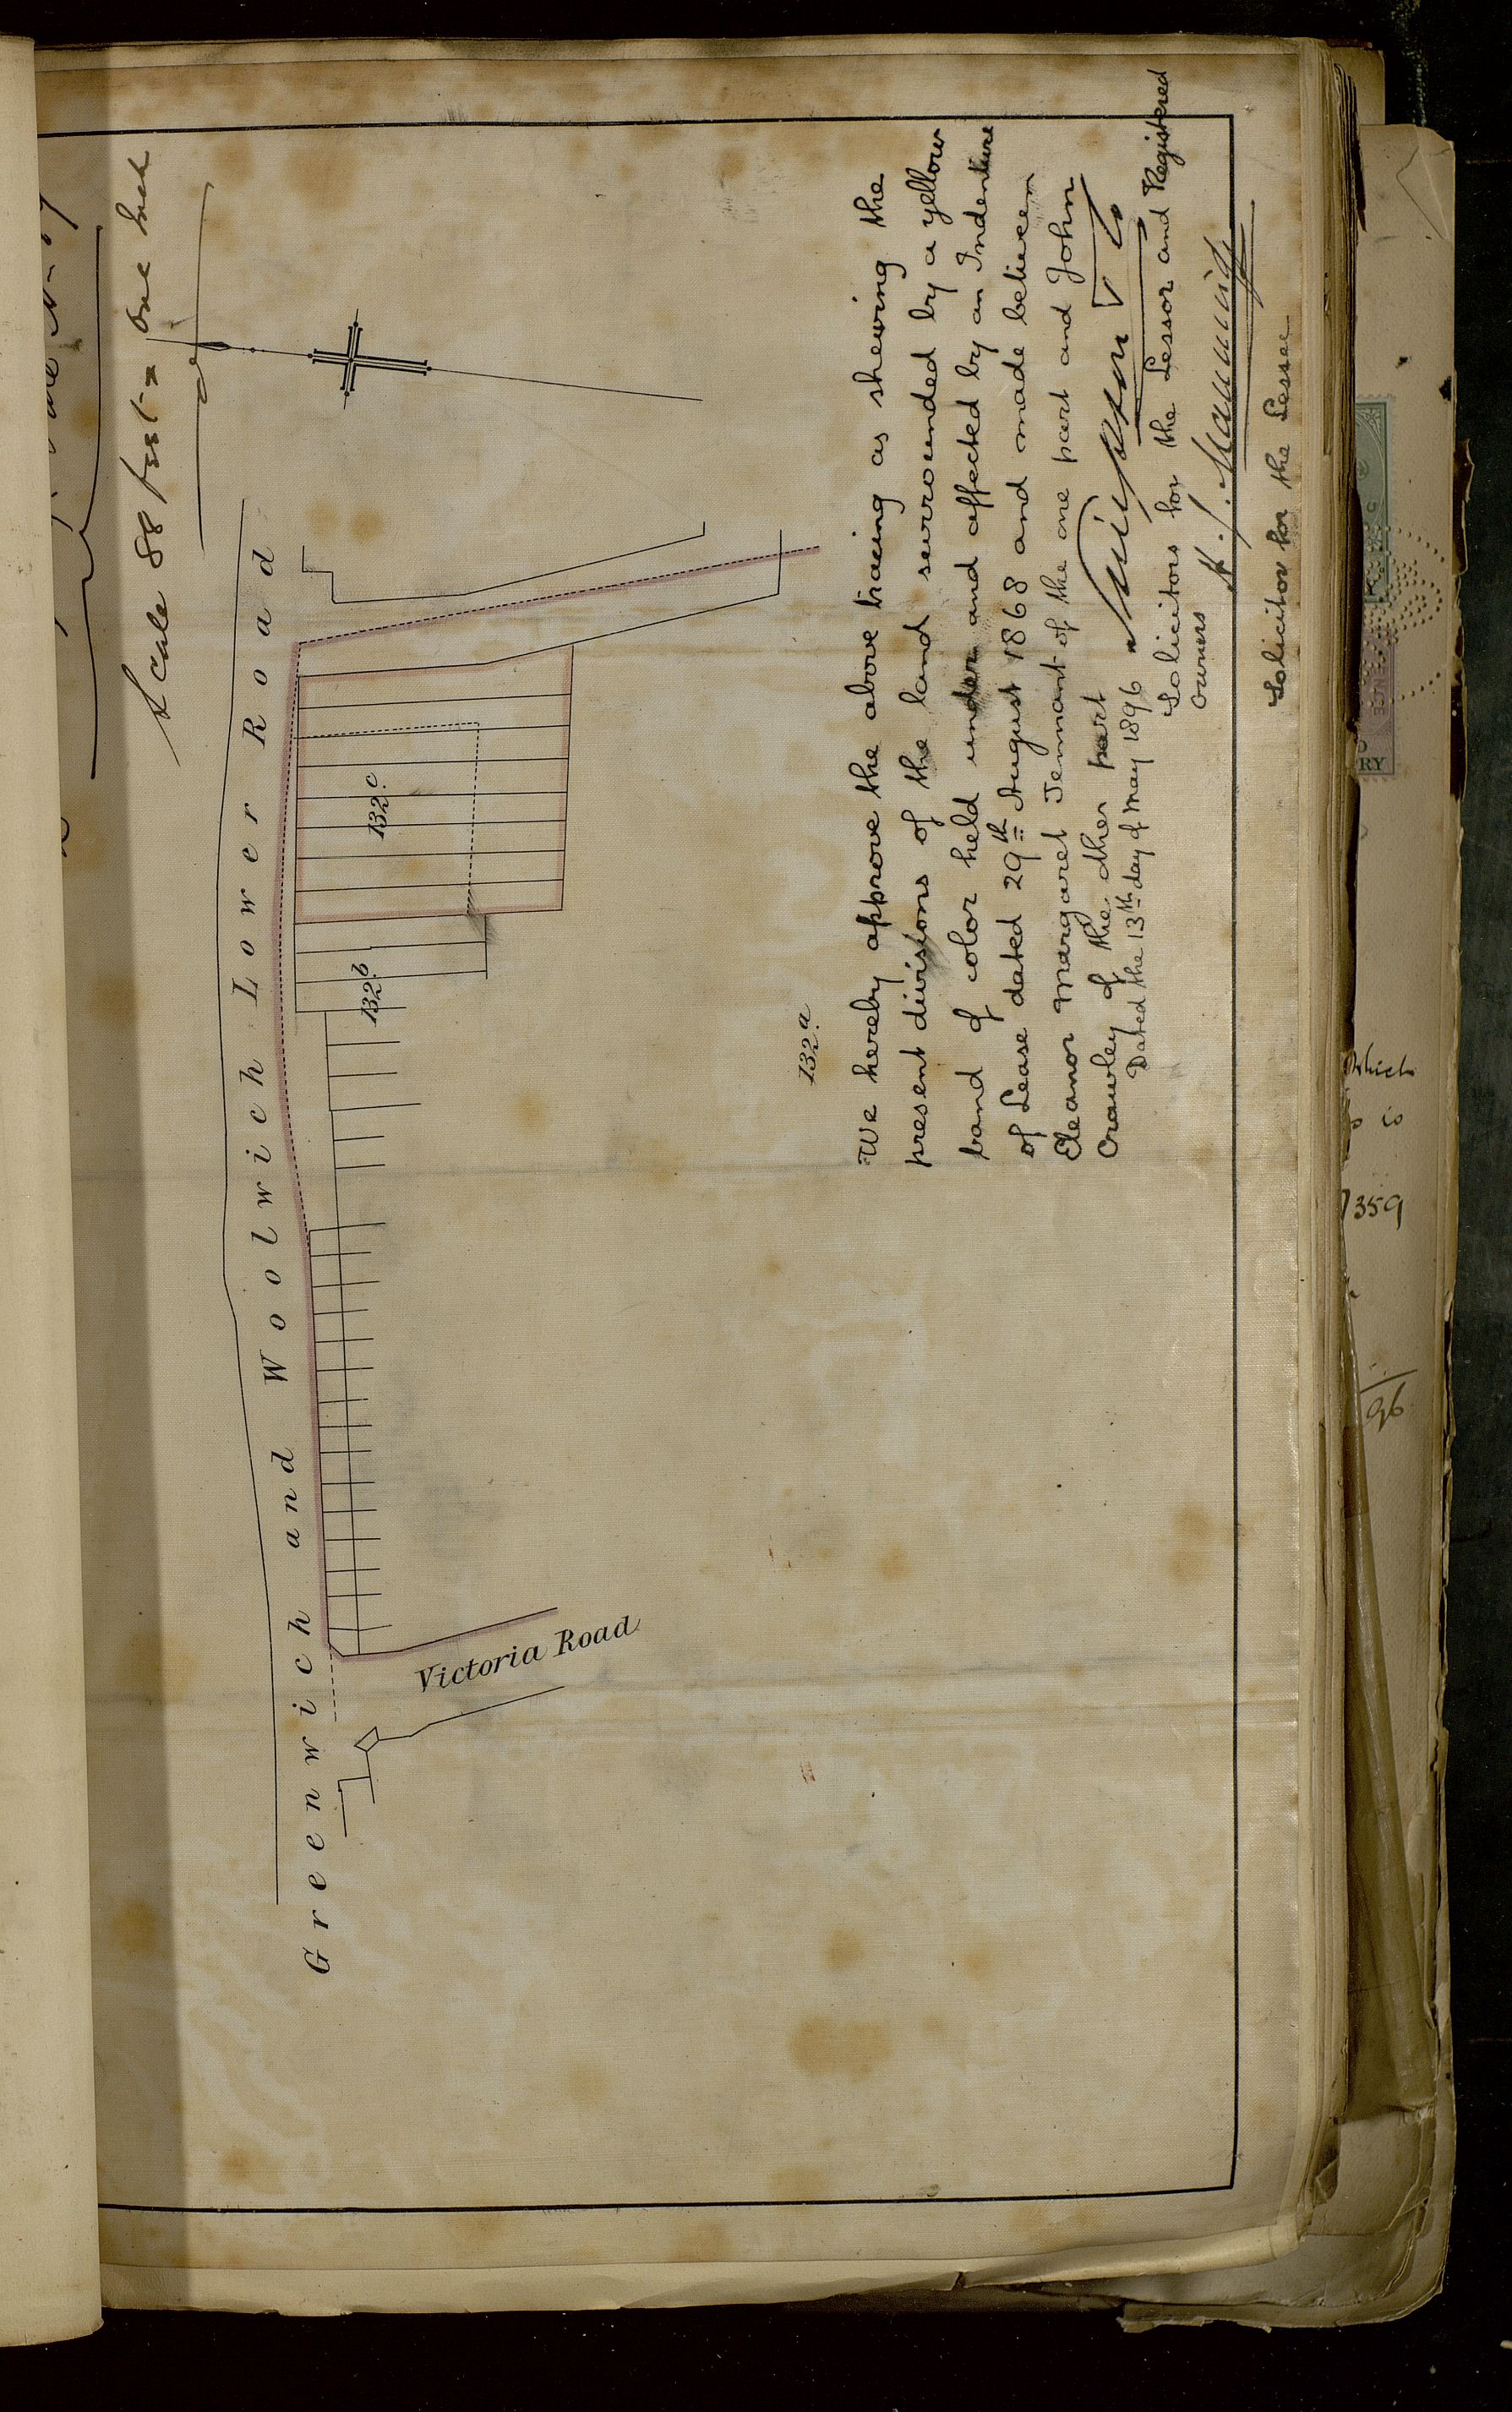 Scale 88 feet = one inch
Greenwich and Woolwich Lower Road
Victoria Road
132.c
132.b
132.a
We hereby approve the above tracing as shewing the
present divisions of the land surrounded by a yellow
band of color held under and affected by an Indenture
of Lease dated 29th August 1868 and made between
Eleanor Margaret Tennant of the one part and John
Crawley of the other part
Dated the 13th day of May 1896
Solicitors for the Lessor and Registered
owners
Solicitor for the Lessee
which
is
359
96
RY